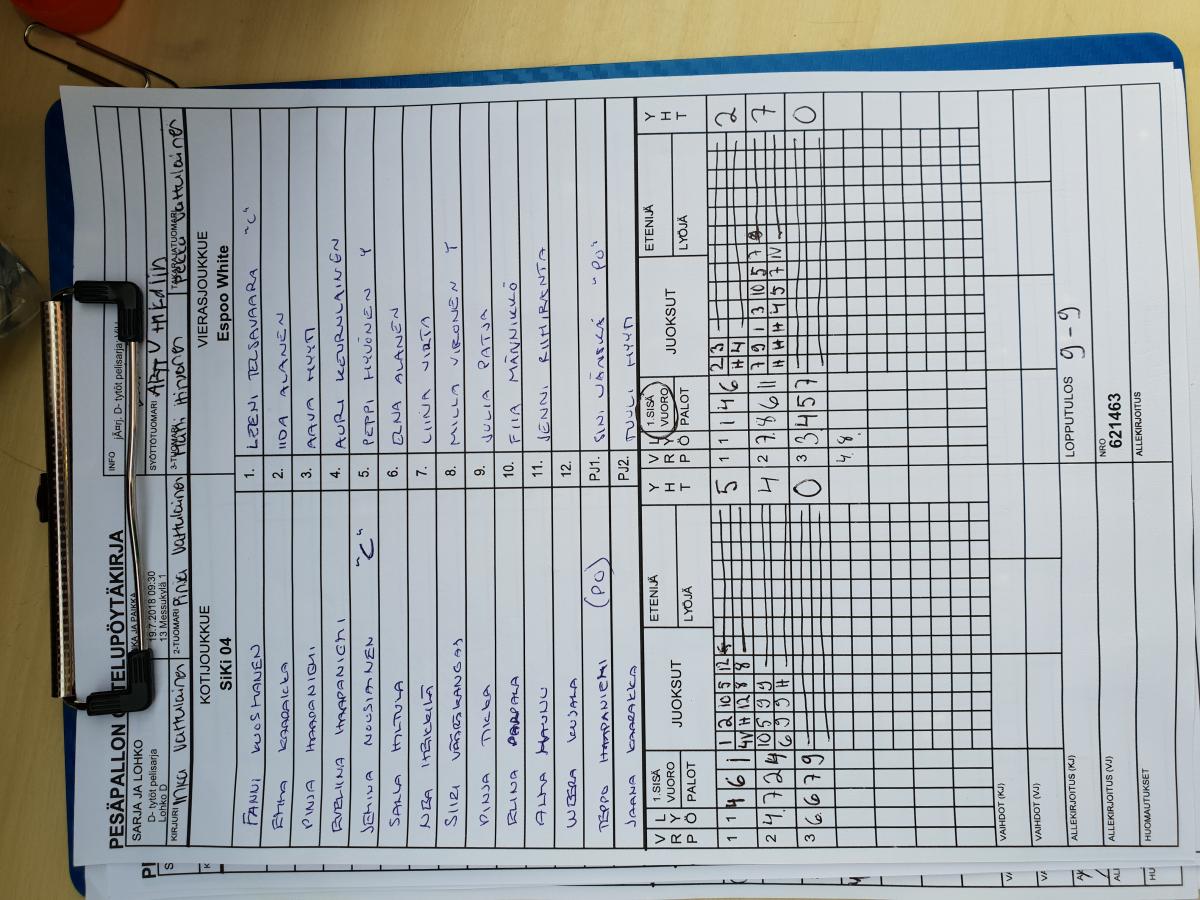 PESÄPALLON OTTELUPÖYTÄKIRJA
SARJA JA LOHKO
D- tytöt pelisarja
Lohko D
KA JA PAIKKA
19.7.2018 09:30
13 Messukylä 1
INFO
D- tytöt pelisarja
SYÖTTÖTUOMARI
KIRJURI Inka Vattulainen
2-TUOMARI Pinja Vattulainen
3-TUOMARI Harri Hirvonen
TAKARAJATUOMARI Pekka Vattulainen
KOTIJOUKKUE
SiKi 04
VIERASJOUKKUE
Espoo White
FANNI KUOSMANEN
1. LEENI TERSAVAARA "C"
2. IIDA ALANEN
PINJA HAAPANIEMI
3. AAVA HYYTI
EVELIINA HAAPANIEMI
4. AURI KEURULAINEN
JEMINA NOUSIAINEN "C"
5. PEPPI HYVÖNEN Y
SALLA HILTULA
6. ERNA ALANEN
NEA HEIKKILÄ
7. LIINA VIRTA
SIIRI VÄÄRSKANGAS
8. MILLA VIRONEN Y
PINJA TIKKA
9. JULIA PATJA
10. FIIA MÄNNIKKÖ
11. JENNI RIIHIRANTA
WEERA KUJALA
12.
TEPPO HAAPANIEMI (PO)
PJ1. SINI VÄNSKÄ "PO"
JAANA KAARAKKA
PJ2. TUULI HYYTI
VRP LYÖ 1.SISÄ VUORO PALOT JUOKSUT ETENIJÄ LYÖJÄ YHT
VRP LYÖ 1.SISÄ VUORO PALOT JUOKSUT ETENIJÄ LYÖJÄ YHT
1 1 4 6 1 1 2 10 5 12 5
4V H 12 8 8
1 1 1 4 6 2 3 2
H 4
2 4. 7 2 4 10 5 9 9 4
6 9 9 H
2 7. 8 6 11 7 9 1 3 10 5 7 7
H H H 4 5 7 IV
3 6. 6 7 9 0
3 3 4 5 7 0
4. 8.
VAIHDOT (KJ)
VAIHDOT (VJ)
ALLEKIRJOITUS (KJ)
LOPPUTULOS 9-9
ALLEKIRJOITUS (VJ)
NRO
621463
HUOMAUTUKSET
ALLEKIRJOITUS